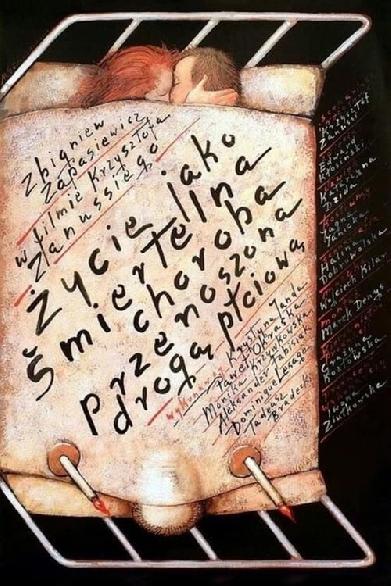 Zbigniew
Zapasiewicz
w filmie Krzysztofa
Zanussiego
Życie jako
śmiertelna
choroba
przenoszona
drogą płciową
Krystyna Janda
Paweł Okraska
Monika Krzywkowska
Aleksander Fabisiak
Dominique Lesage
Tadeusz
Bradecki
Krzysztof
Zanussi
Edward
Kłosiński
Wojciech Kilar
Marek Drews